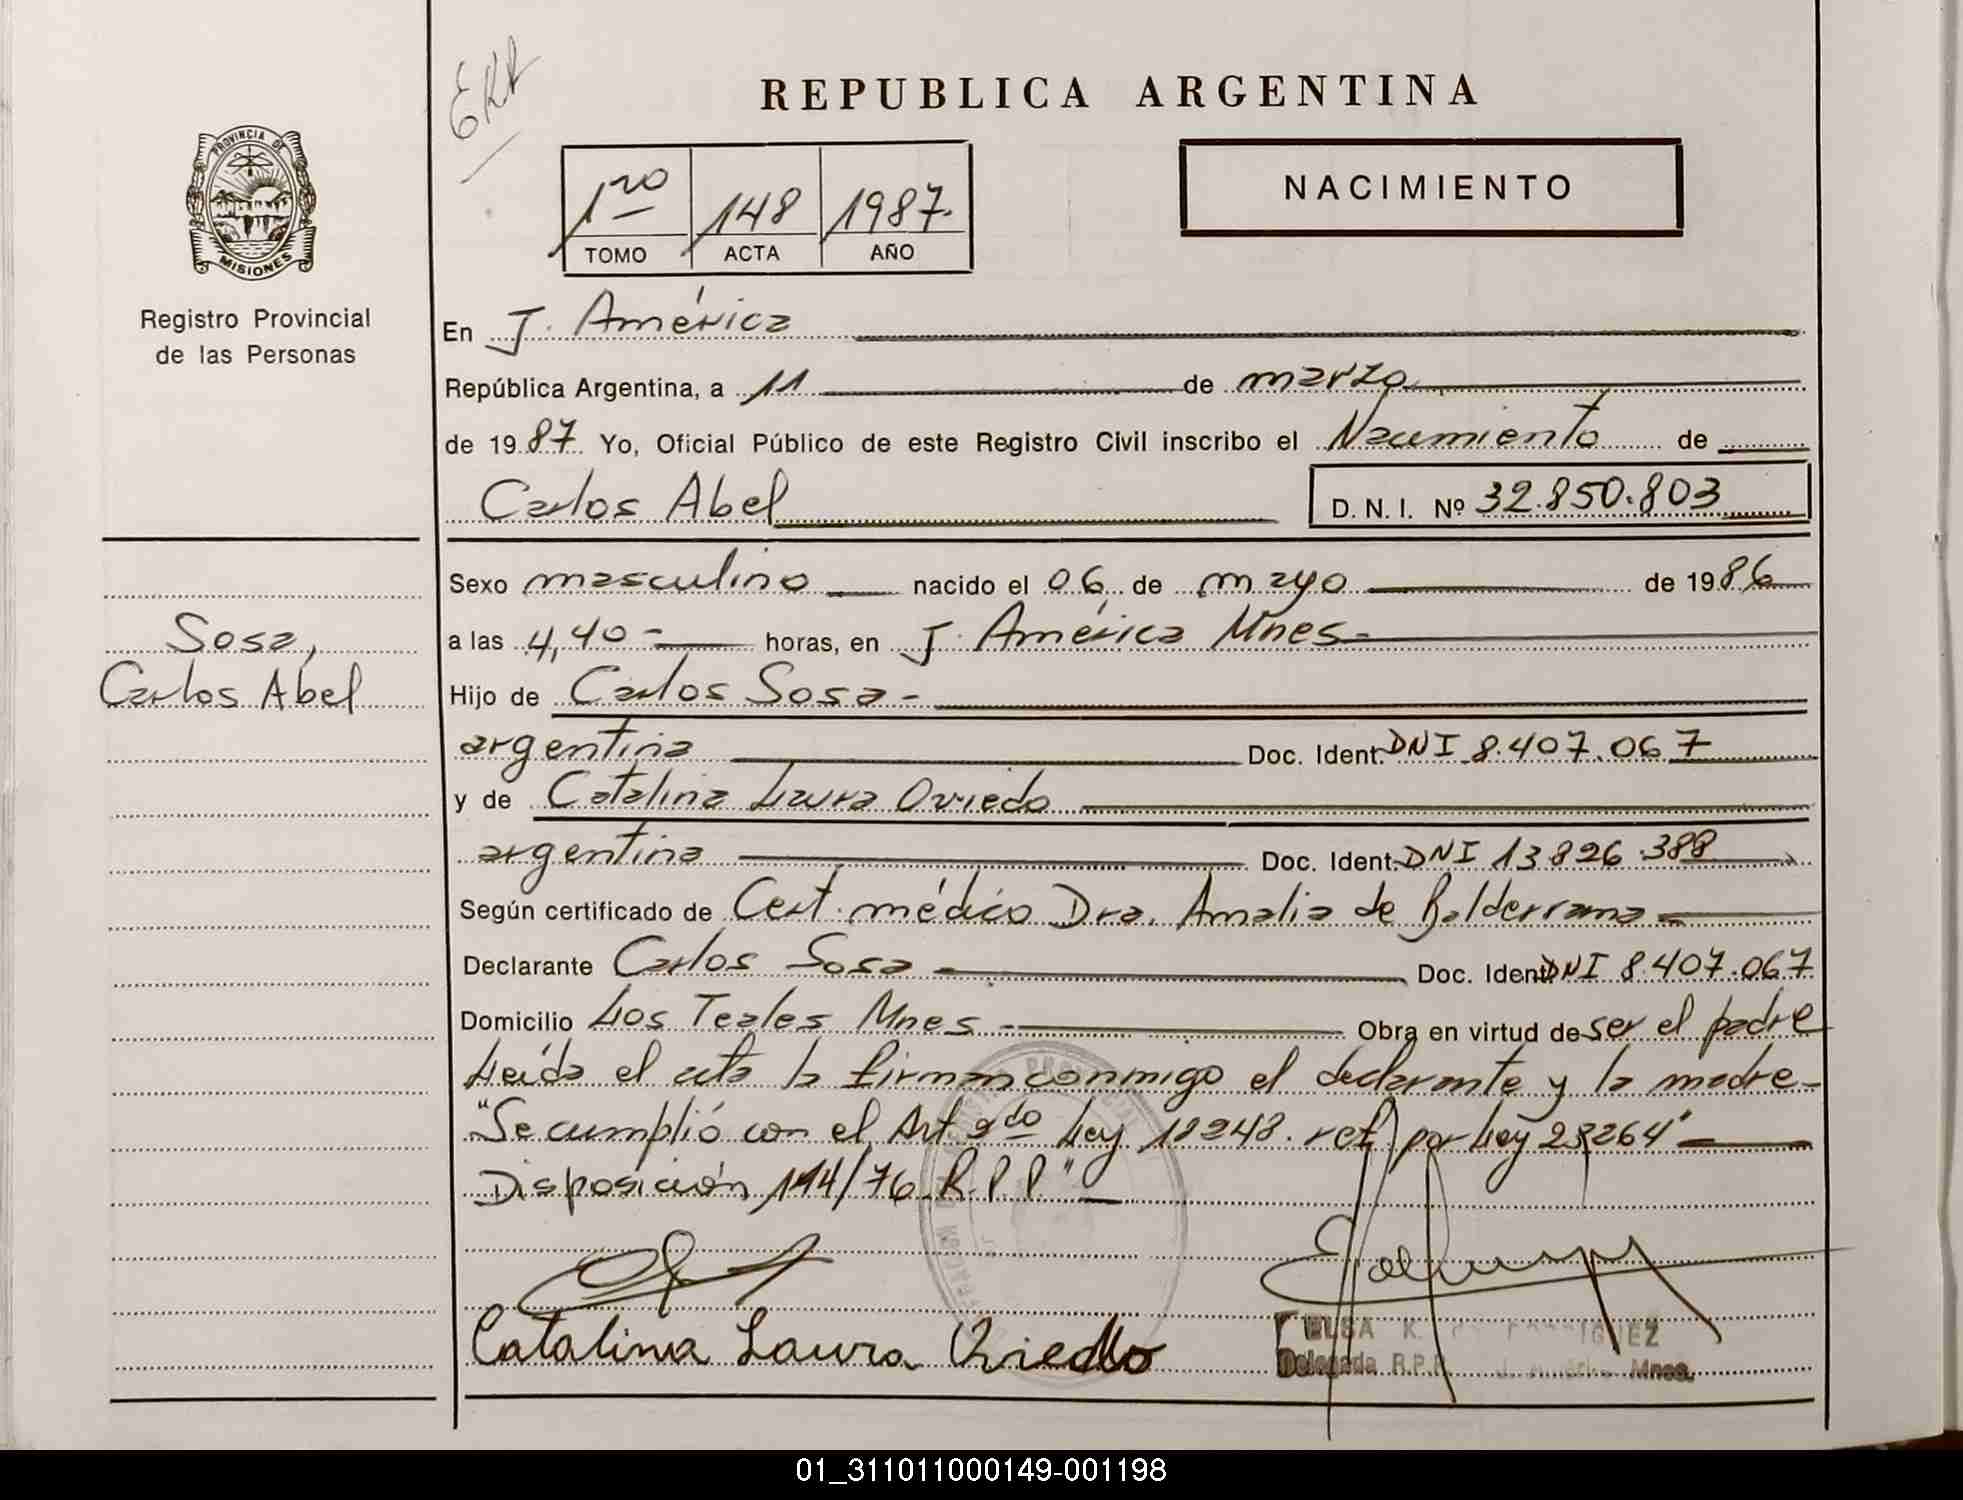 ERR
REPUBLICA ARGENTINA
PROVINCIA DE
MISIONES
1ro 148 1987.
TOMO ACTA AÑO
NACIMIENTO
Registro Provincial
de las Personas
En J. América
República Argentina, a 11 de marzo
de 1987. Yo, Oficial Público de este Registro Civil inscribo el Nacimiento de
Carlos Abel D. N. I. Nº 32.850.803
Sexo masculino nacido el 06 de mayo de 1986
Sosa,
Carlos Abel
a las 4,40- horas, en J. América Mnes-
Hijo de Carlos Sosa-
argentina Doc. Ident. DNI 8.407.067
y de Catalina Laura Oviedo
argentina Doc. Ident. DNI 13.826.388
Según certificado de Cert. médico Dra. Amalia de Balderrama-
Declarante Carlos Sosa Doc. Ident. DNI 8.407.067
Domicilio Los Teales Mnes- Obra en virtud de ser el padre
Leída el acta la firman conmigo el declarante y la madre-
"Se cumplió con el Art 2do Ley 18248. ref. por Ley 23264"
Disposición 144/76 R.P.P."
Catalina Laura Oviedo
ELSA K. de RODRIGUEZ
Delegada R.P.P. J. América Mnes.
01_311011000149-001198